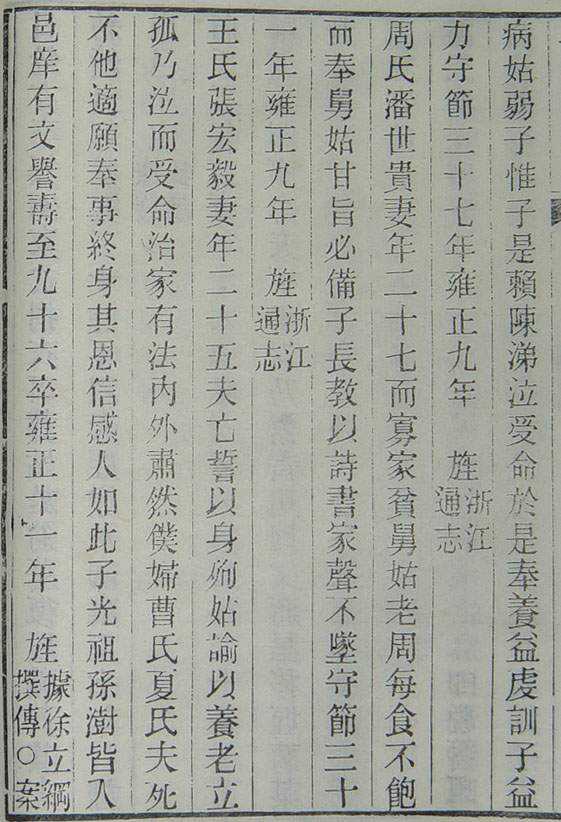 病姑弱子惟子是賴陳涕泣受命於是奉養益虔訓子益
力守節三十七年雍正九年 旌浙江通志
周氏潘世貴妻年二十七而寡家貧舅姑老周每食不飽
而奉舅姑甘旨必備子長教以詩書家聲不墜守節三十
一年雍正九年 旌浙江通志
王氏張宏毅妻年二十五夫亡誓以身殉姑諭以養老立
孤乃泣而受命治家有法內外肅然僕婦曹氏夏氏夫死
不他適願奉事終身其恩信感人如此子光祖孫澍皆入
邑庠有文譽壽至九十六卒雍正十一年 旌據徐立綱撰傳○案